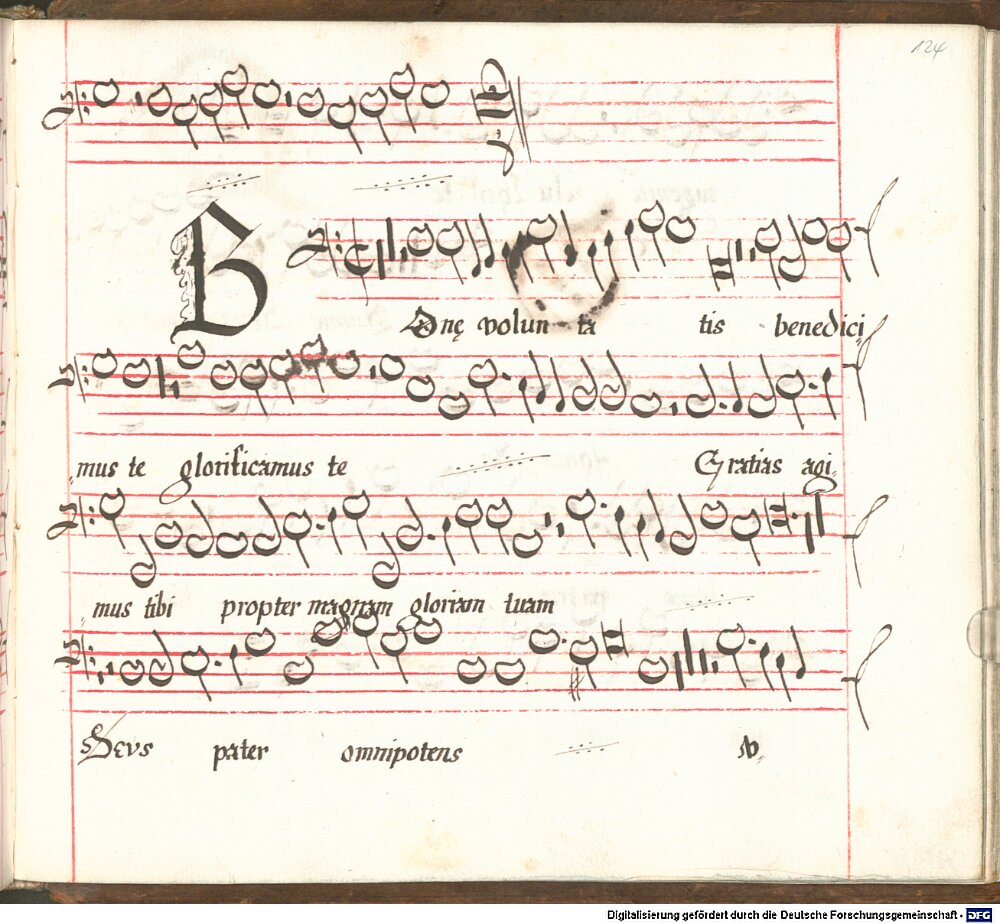 124
Bonę volun ta tis benedici„
„mus te glorificamus te Gratias agi„
„mus tibi propter magnam gloriam tuam
Deus pater omnipotens v„
Digitalisierung gefördert durch die Deutsche Forschungsgemeinschaft - DFG